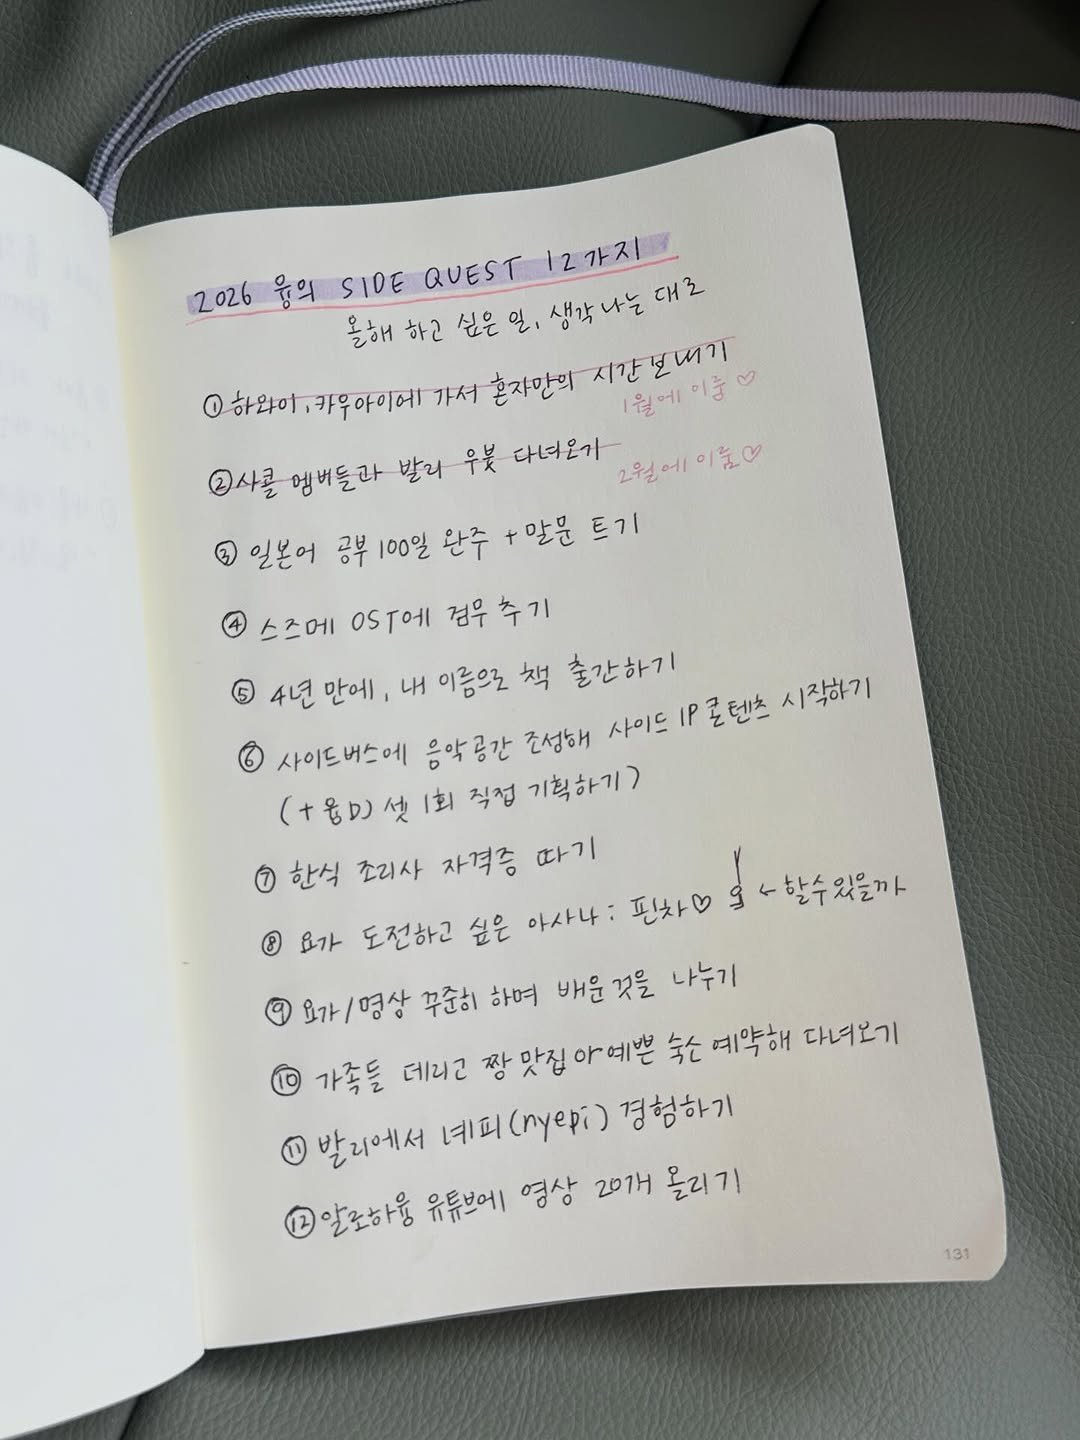 2026 융의 SIDE QUEST 12가지
올해 하고 싶은 일, 생각나는 대로
① 하와이, 카우아이에 가서 혼자만의 시간 보내기
1월에 이룸♡
② 사콜 멤버들과 발리 우붓 다녀오기
2월에 이룸♡
③ 일본어 공부 100일 완주 + 말문 트기
④ 스즈메 OST에 검무 추기
⑤ 4년 만에, 내 이름으로 책 출간하기
⑥ 사이드버스에 음악공간 조성해 사이드 IP 콘텐츠 시작하기
(+ 융D) 셋 1회 직접 기획하기)
⑦ 한식 조리사 자격증 따기
⑧ 요가 도전하고 싶은 아사나 : 핀차♡ ← 할 수 있을까
⑨ 요가/명상 꾸준히 하며 배운 것을 나누기
⑩ 가족들 데리고 짱 맛집 아 예쁜 숙소 예약해 다녀오기
⑪ 발리에서 녜피(nyepi) 경험하기
⑫ 알로하융 유튜브에 영상 20개 올리기
131